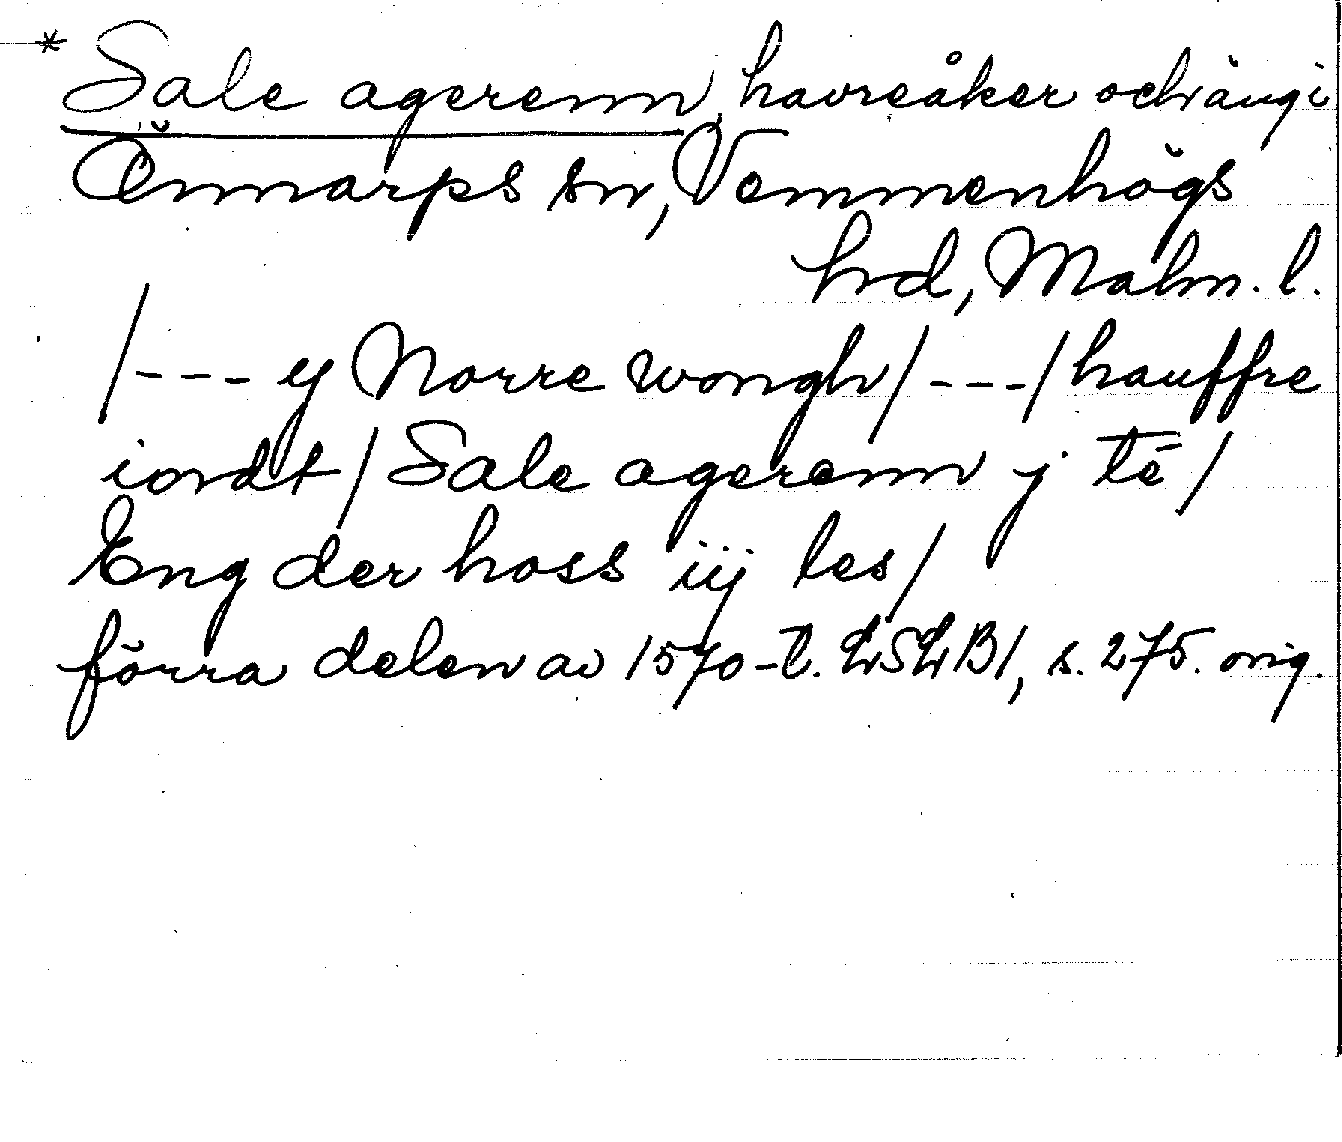 * Sale agerenn, havreåker och äng i
Önnarps sn, Vemmenhögs
hrd, Malm. l.
/--- y Norre wongh/---/hauffre
iordt/Sale agerenn j tē/
Eng der hoss iij les/
förra delen av 1570-t. LSLB1, s. 275. orig.